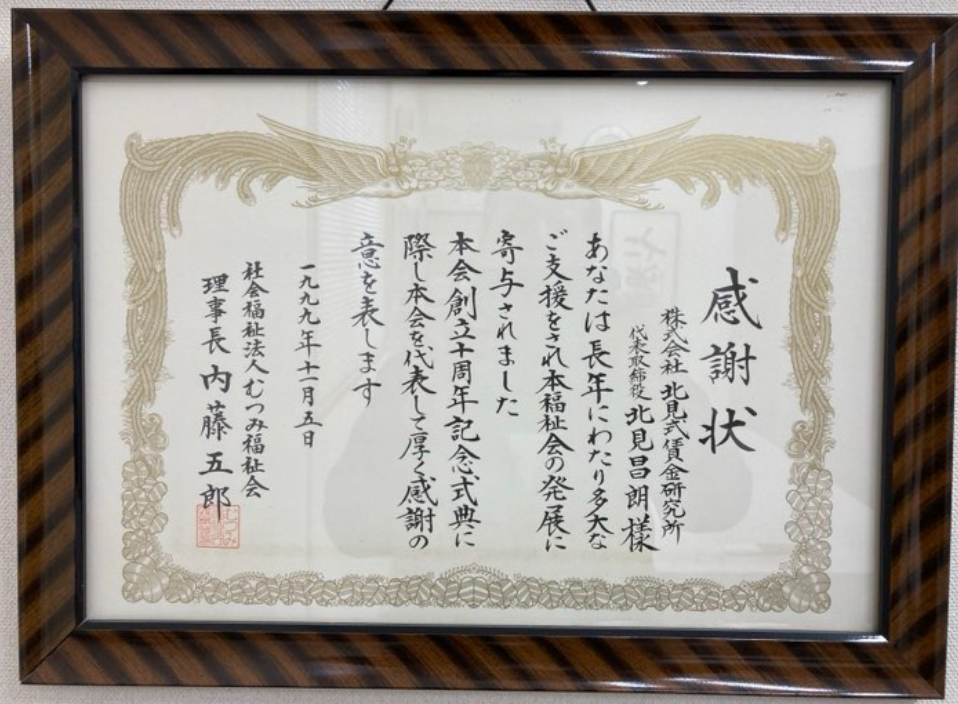 感謝状
株式会社 北見式賃金研究所
代表取締役 北見昌朗様
あなたは長年にわたり多大な
ご支援をされ本福祉会の発展に
寄与されました
本会創立十周年記念式典に
際し本会を代表して厚く感謝の
意を表します
一九九九年十一月五日
社会福祉法人むつみ福祉会
理事長 内藤五郎